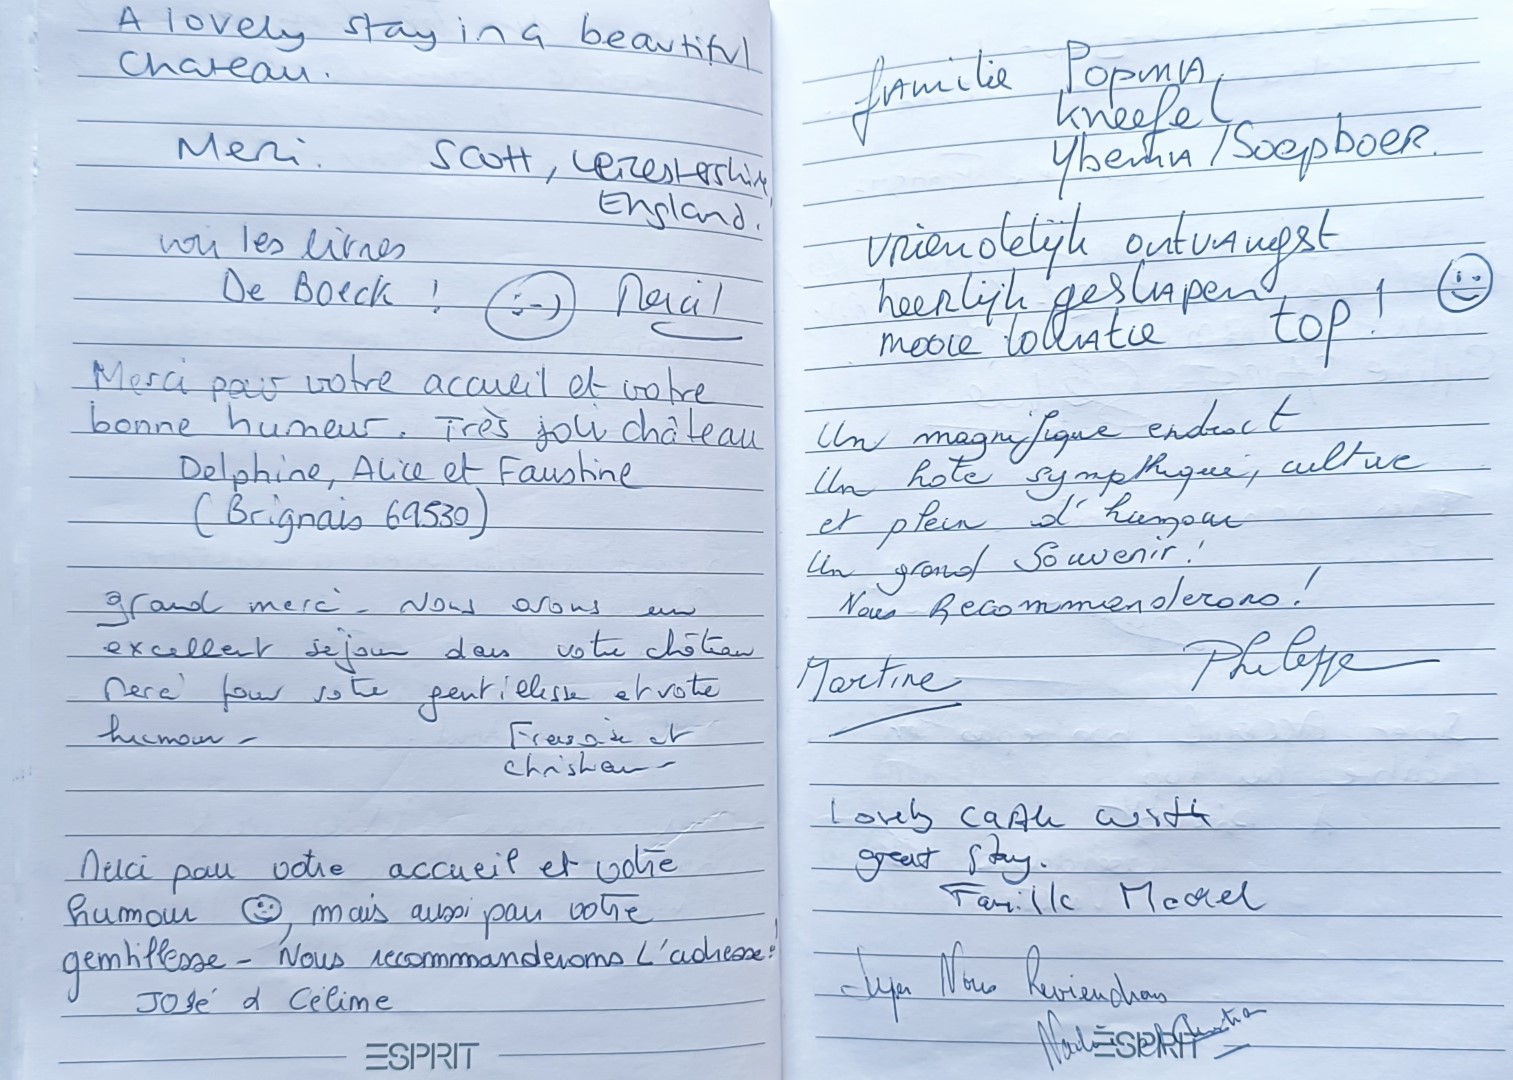 A lovely stay in a beautiful
chateau.
Merci. Scott, Leicestershire,
England.
voir les livres
De Boeck ! :-) Merci!
Merci pour votre accueil et votre
bonne humeur. Très joli château
Delphine, Alice et Faustine
(Brignais 69530)
grand merci - Nous avons eu
excellent séjour dans votre château
Merci pour votre gentillesse et votre
humour - Françoise et
Christian -
Merci pour votre accueil et votre
humour , mais aussi pour votre
gentillesse - Nous recommanderons L'adresse !
José & Céline
ESPRIT
familie Popma
Kneefel
Ybema / Soepboer.
vriendelijk ontvangst
heerlijk geslapen
mooie lokatie top!
Un magnifique endroit
Un hote sympthique, cultive
et plein d'humour
Un grand Souvenir!
Nous Recommenderons!
Martine Philippe
Lovely castle with
great stay.
Famille
Super Nous Reviendrons
ESPRIT